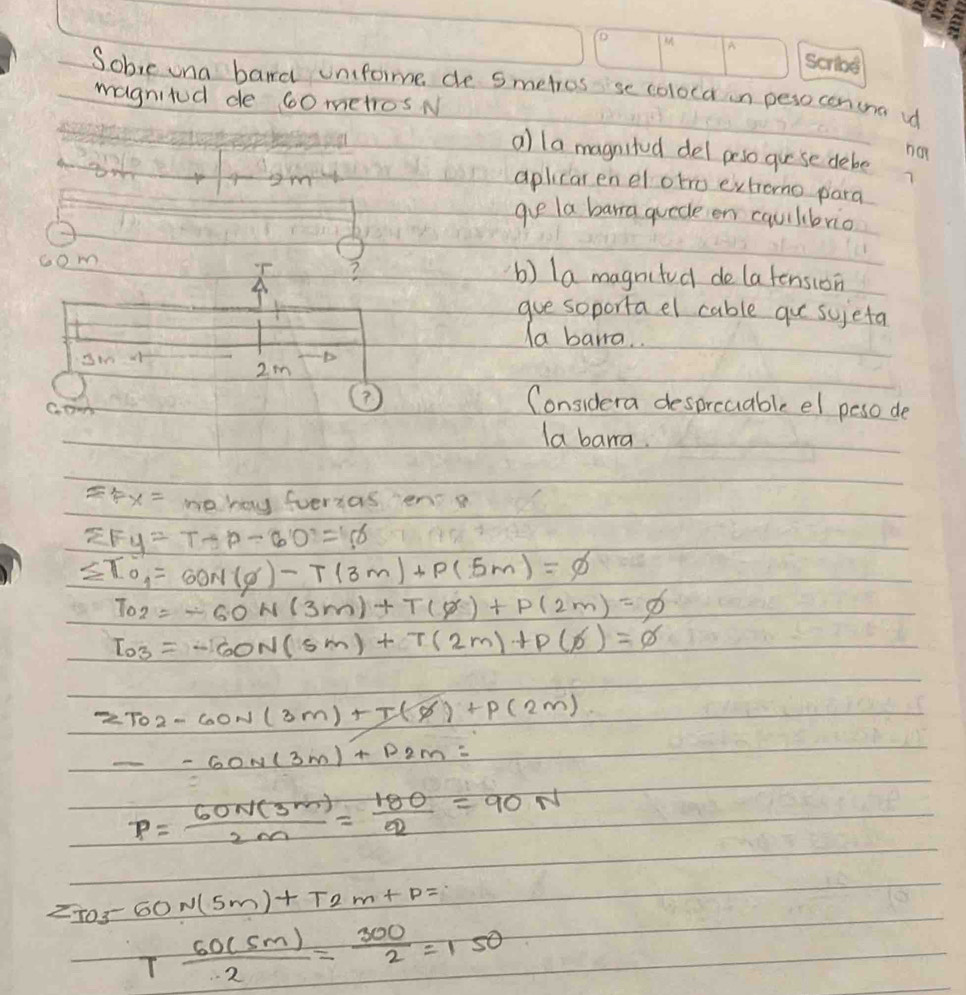 D M A
Scribe
Sobre una barra uniforme de 5 metros se coloca un peso con una
magnitud de 60 metros N
a) la magnitud del peso que se debe
aplicar en el otro extremo para
que la barra quede en equilibrio
3m 2m
60m ?
b) la magnitud de la tensión
que soporta el cable que sujeta
la barra..
T
3m 2m
60m ?
Considera despreciable el peso de
la barra.
ΣFx = no hay fuerzas en
ΣFy = T - P - 60 = ø
ΣTo1 = 60N(ø) - T(3m) + P(5m) = ø
To2 = - 60N(3m) + T(ø) + P(2m) = ø
To3 = - 60N(5m) + T(2m) + P(ø) = ø
ΣTo2 - 60N(3m) + T(ø) + P(2m)
- - 60N(3m) + P2m =
P = 60N(3m) / 2m = 180 / 2 = 90 N
ΣTo3 - 60N(5m) + T2m + P =
T 60(5m) / 2 = 300 / 2 = 150